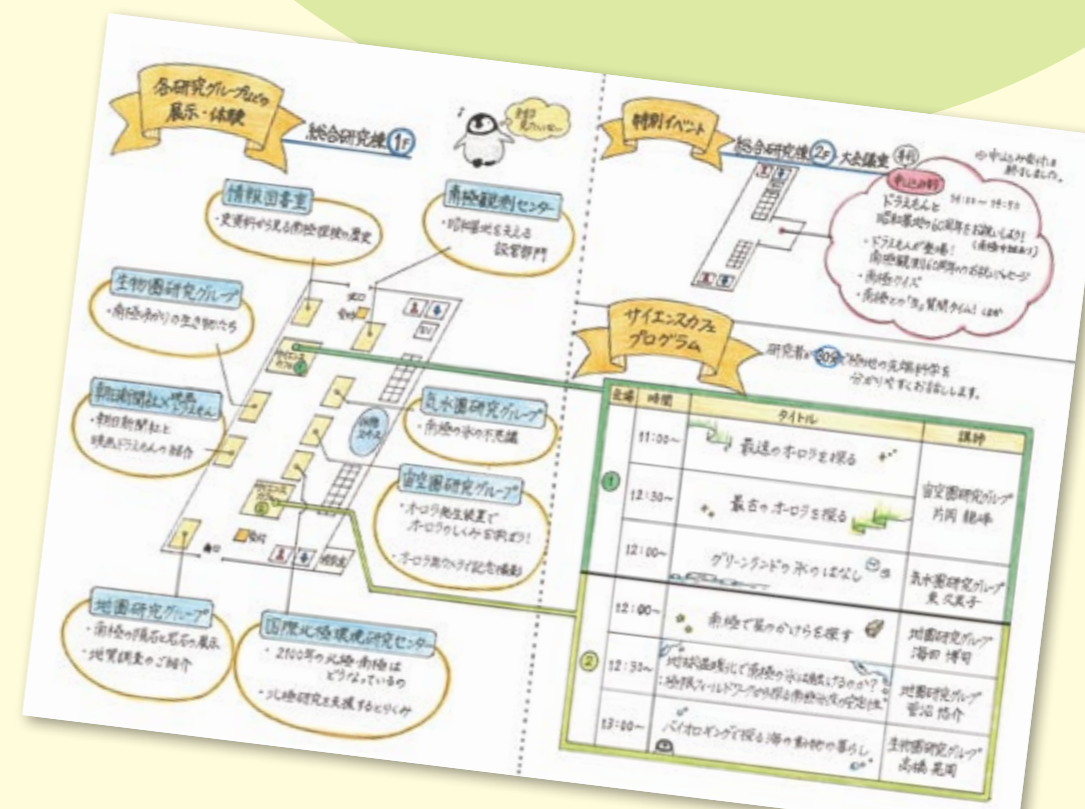 各研究グループなどの
展示・体験
総合研究棟 1F
情報図書室
・史資料から見る南極探検の歴史
南極観測センター
・昭和基地を支える
設営部門
生物圏研究グループ
・南極ゆかりの生き物たち
朝日新聞社×映画ドラえもん
・朝日新聞社と
映画ドラえもんの紹介
サイエンスカフェ①
気水圏研究グループ
・南極の氷の不思議
宙空圏研究グループ
・オーロラ発生装置で
オーロラのしくみを学ぼう!
休憩スペース
サイエンスカフェ②
地圏研究グループ
・南極の隕石と岩石の展示
・地質調査のご紹介
国際北極環境研究センター
・2100年の北極・南極は
どうなっているの
・北極研究を支援するとりくみ
特別イベント
総合研究棟 2F 大会議室
ドラえもんと
昭和基地の60周年をお祝いしよう!
・ドラえもんが登場!
南極観測60周年のお祝いメッセージ
・南極クイズ
サイエンスカフェ
プログラム
研究者が30分で極地の先端科学を
分かりやすくお話しします。
会場 時間 タイトル 講師
① 11:00~ 最速のオーロラを探る
12:30~ 最古のオーロラを探る
宙空圏研究グループ
片岡 龍峰
12:00~ グリーンランドの氷のはなし
気水圏研究グループ
東 久美子
② 12:00~ 南極で星のかけらを探す
地圏研究グループ
海田 博司
12:30~ 地球温暖化で南極の氷は融けるのか?
地圏研究グループ
菅沼 悠介
13:00~ バイオロギングで探る海の動物の暮らし
生物圏研究グループ
高橋 晃周